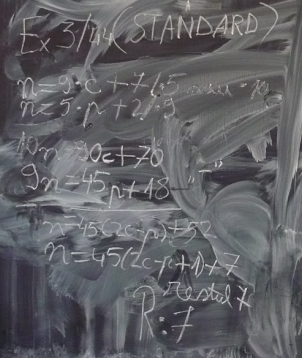 Ex 3/44 (STANDARD)
n=9·c+7/·5
n=5·p+2/·9
10n=90c+70
9n=45p+18 "-"
n=45(2c-p)+52
n=45(2c-p+1)+7
restul 7
R:7